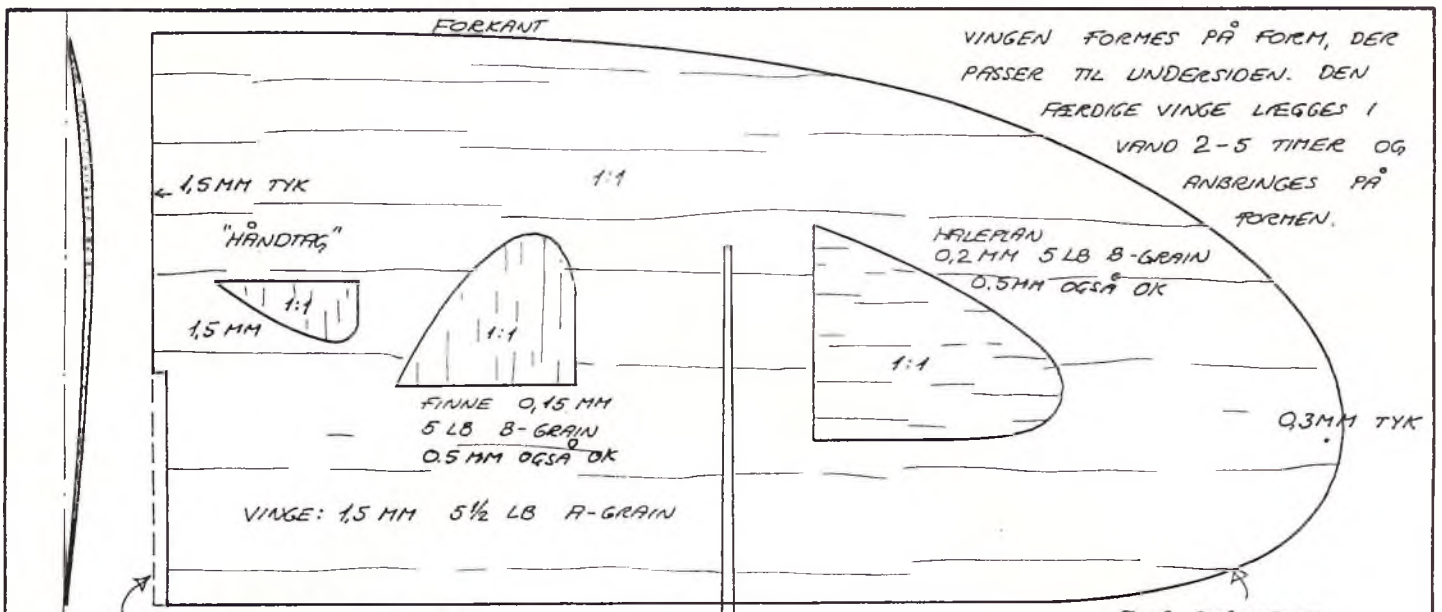 FORKANT
VINGEN FORMES PÅ FORM, DER
PASSER TIL UNDERSIDEN. DEN
FÆRDIGE VINGE LÆGGES I
VAND 2-5 TIMER OG
ANBRINGES PÅ
FORMEN.
1,5 MM TYK
1:1
"HÅNDTAG"
1:1
1,5 MM
1:1
FINNE 0,15 MM
5 LB B-GRAIN
0.5 MM OGSÅ OK
HALEPLAN
0,2 MM 5 LB B-GRAIN
0.5MM OGSÅ OK
1:1
0,3MM TYK
VINGE: 1,5 MM 5½ LB A-GRAIN